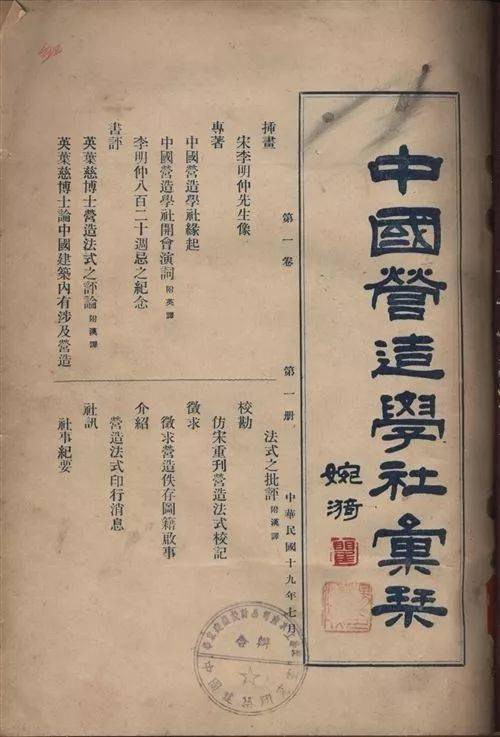 中國營造學社彙栞
婉漪
第一卷 第一册 中華民國十九年七月
插畫
宋李明仲先生像
專著
中國營造學社緣起
中國營造學社開會演詞 附英譯
李明仲八百二十週忌之紀念
書評
英葉慈博士營造法式之評論 附漢譯
英葉慈博士論中國建築內有涉及營造
法式之批評 附漢譯
校勘
仿宋重刋營造法式校記
徵求
徵求營造佚存圖籍啟事
介紹
營造法式印行消息
社訊
社事紀要